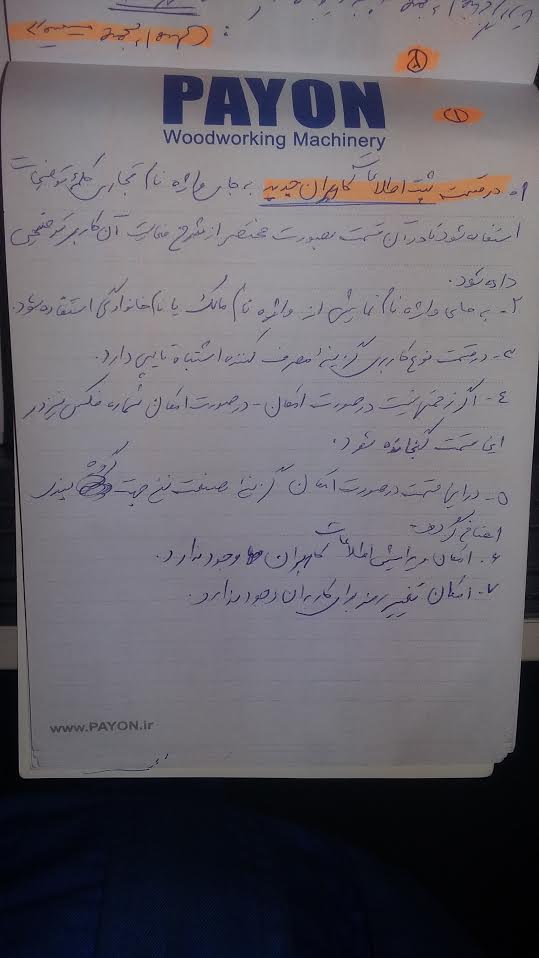 »گروه ا، جمع
۲
PAYON
۱
Woodworking Machinery
۱- در قسمت ثبت اطلاعات کاربران جدید به جای واژه نام تجاری کلمه توضیحات
استفاده شود تا در آن قسمت بصورت مختصر از شرح فعالیت آن کاربر توضیحی
داده شود.
۲- به جای واژه نام نمایش از واژه نام مالک یا نام خانوادگی استفاده شود.
۳- در قسمت نوع کاربری گزینه مصرف کننده اشتباه تایپی دارد.
۴- اگر زحمتی نیست در صورت امکان - در صورت امکان شماره فکس نیز در
این قسمت گنجانده شود.
۵- در این قسمت در صورت امکان گزینه صنعت نیز جهت گروه بندی
اضافه گردد.
۶- امکان ویرایش اطلاعات کاربران وجود ندارد.
۷- امکان تغییر رمز برای کاربران وجود ندارد.
www.PAYON.ir